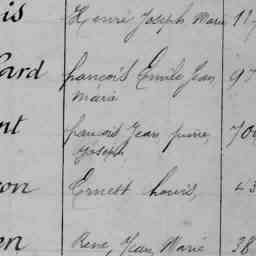 is Henri Joseph Marie 11
ard francois Emile Jean 97
Marie
nt francois Jean pierre, 70
Joseph
on Ernest Louis, 43
en Rene, Jean, Marie 38